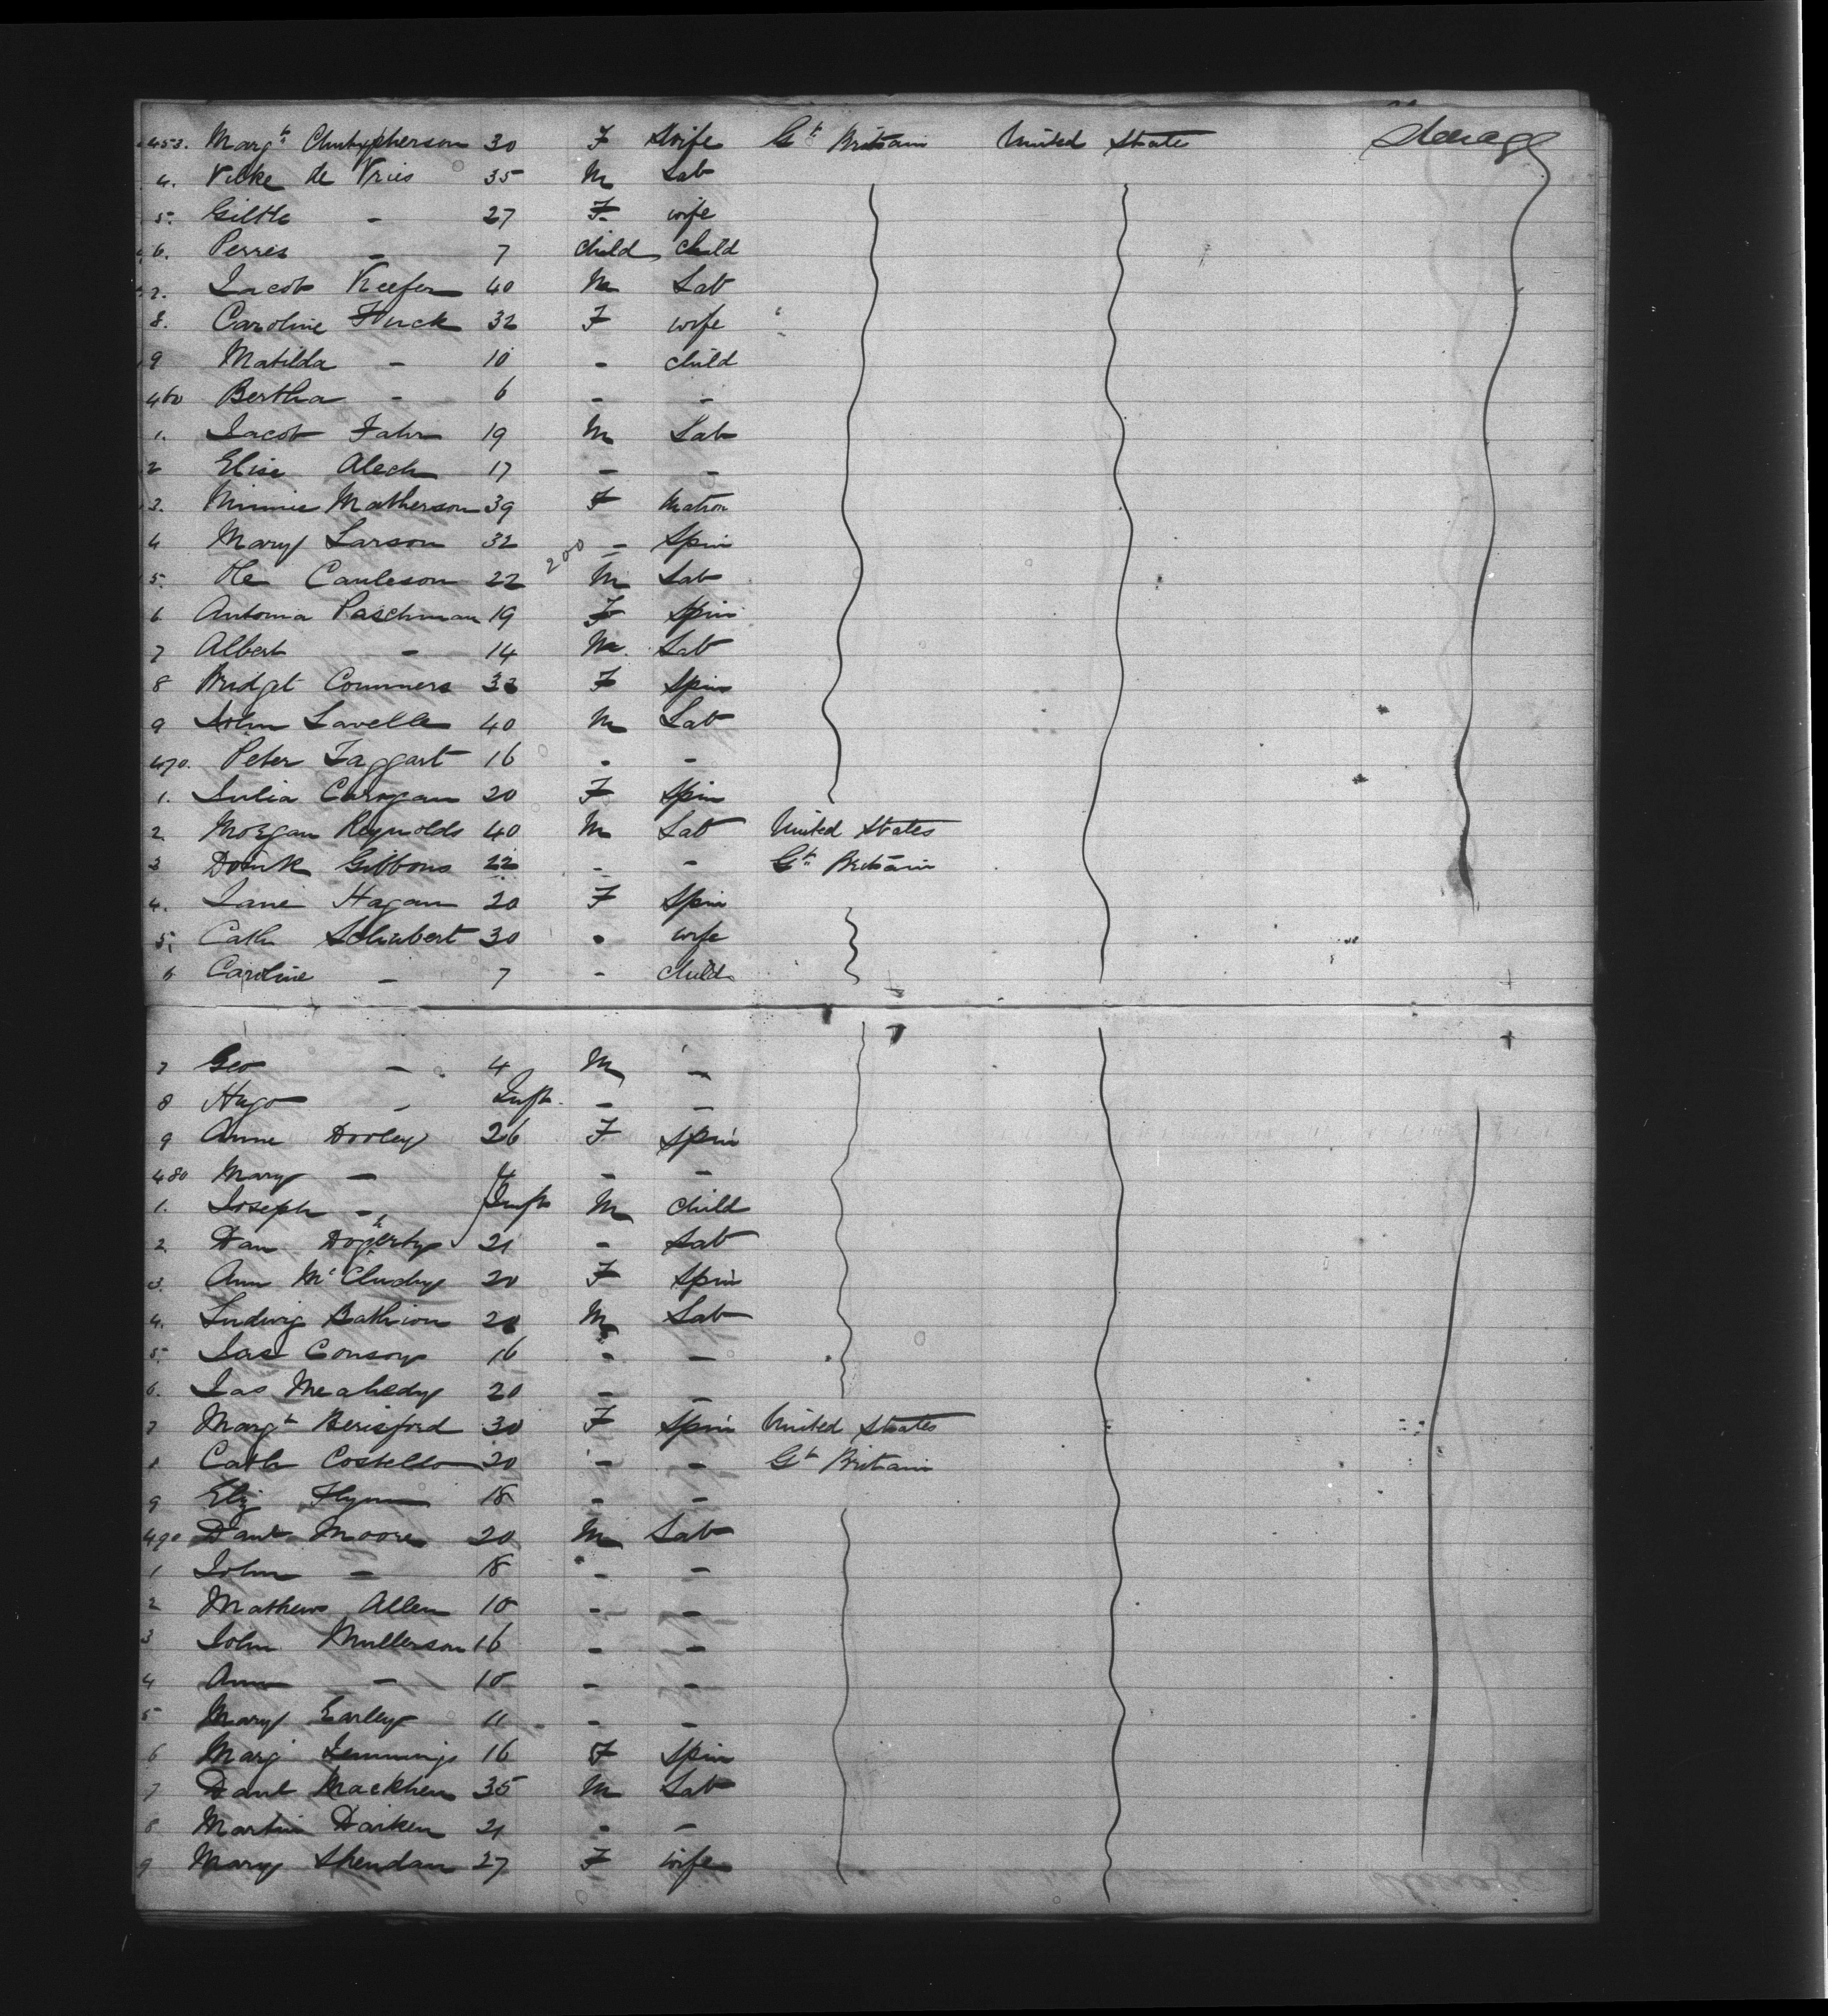 453. Margt Christypherson 30 F Wife Gt Britain United State Steerage
4. Velke de Vries 35 M Lab
5. Giltle - 27 F wife
6. Perres - 7 child child
7. Jacob Keefer 40 M Lab
8. Caroline Huck 32 F wife
9 Matilda - 10 - child
460 Bertha - 6 - -
1. Jacob Fahr 19 M Lab
2 Elise Alech 17 - -
3. Minnie Matherson 39 F Matron
4 Mary Larson 32 200 - Spin
5. Ole Carleson 22 M Lab
6 Antonia Paschman 19 F Spin
7 Albert - 14 M. Lab
8 Bridget Commers 33 F Spin
9 John Lavelle 40 M Lab
470. Peter Taggart 16 - -
1. Julia Corogan 20 F Spin
2 Morgan Reynolds 40 M Lab United States
3 Domk Gibbons 22 - - Gt Britain
4. Jane Hagan 20 F Spin
5. Cath Schubert 30 - wife
6 Caroline - 7 - child
7 Geo - 4 M -
8 Hugo - Inft. - -
9 Anne Dooley 26 F Spin
480 Mary - 4 - -
1. Joseph - Inft M child
2. Dan Dogherty 21 - Lab
3. Ann McCluchy 20 F Spin
4. Ludwig Bathion 20 M Lab
5. Jas Conroy 16 - -
6. Jas Meahedy 20 - -
7 Margt Berisford 30 F Spin United States
8 Cath Costello 20 - - Gt Britain
9 Eliz Flynn 18 - -
490 Danl Moore 20 M Lab
1 John - 18 - -
2 Mathew Allen 10 - -
3 John Mullerson 16 - -
4 Ann - 10 - -
5 Mary Earley 11 - -
6 Marg Jennings 16 F Spin
7 Danl Mackhen 35 M Lab
8 Martin Darken 21 - -
9 Mary Sheridan 27 F wife